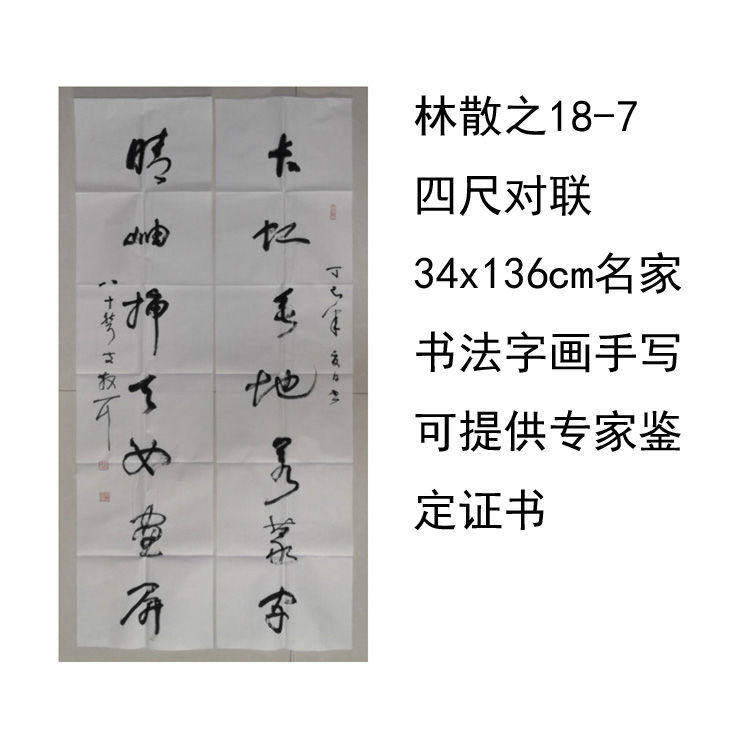 林散之18-7
四尺对联
34x136cm名家
书法字画手写
可提供专家鉴
定证书
长虹垂地若篆字
丁巳年夏日书
晴岫插天如畫屏
八十聋叟散耳